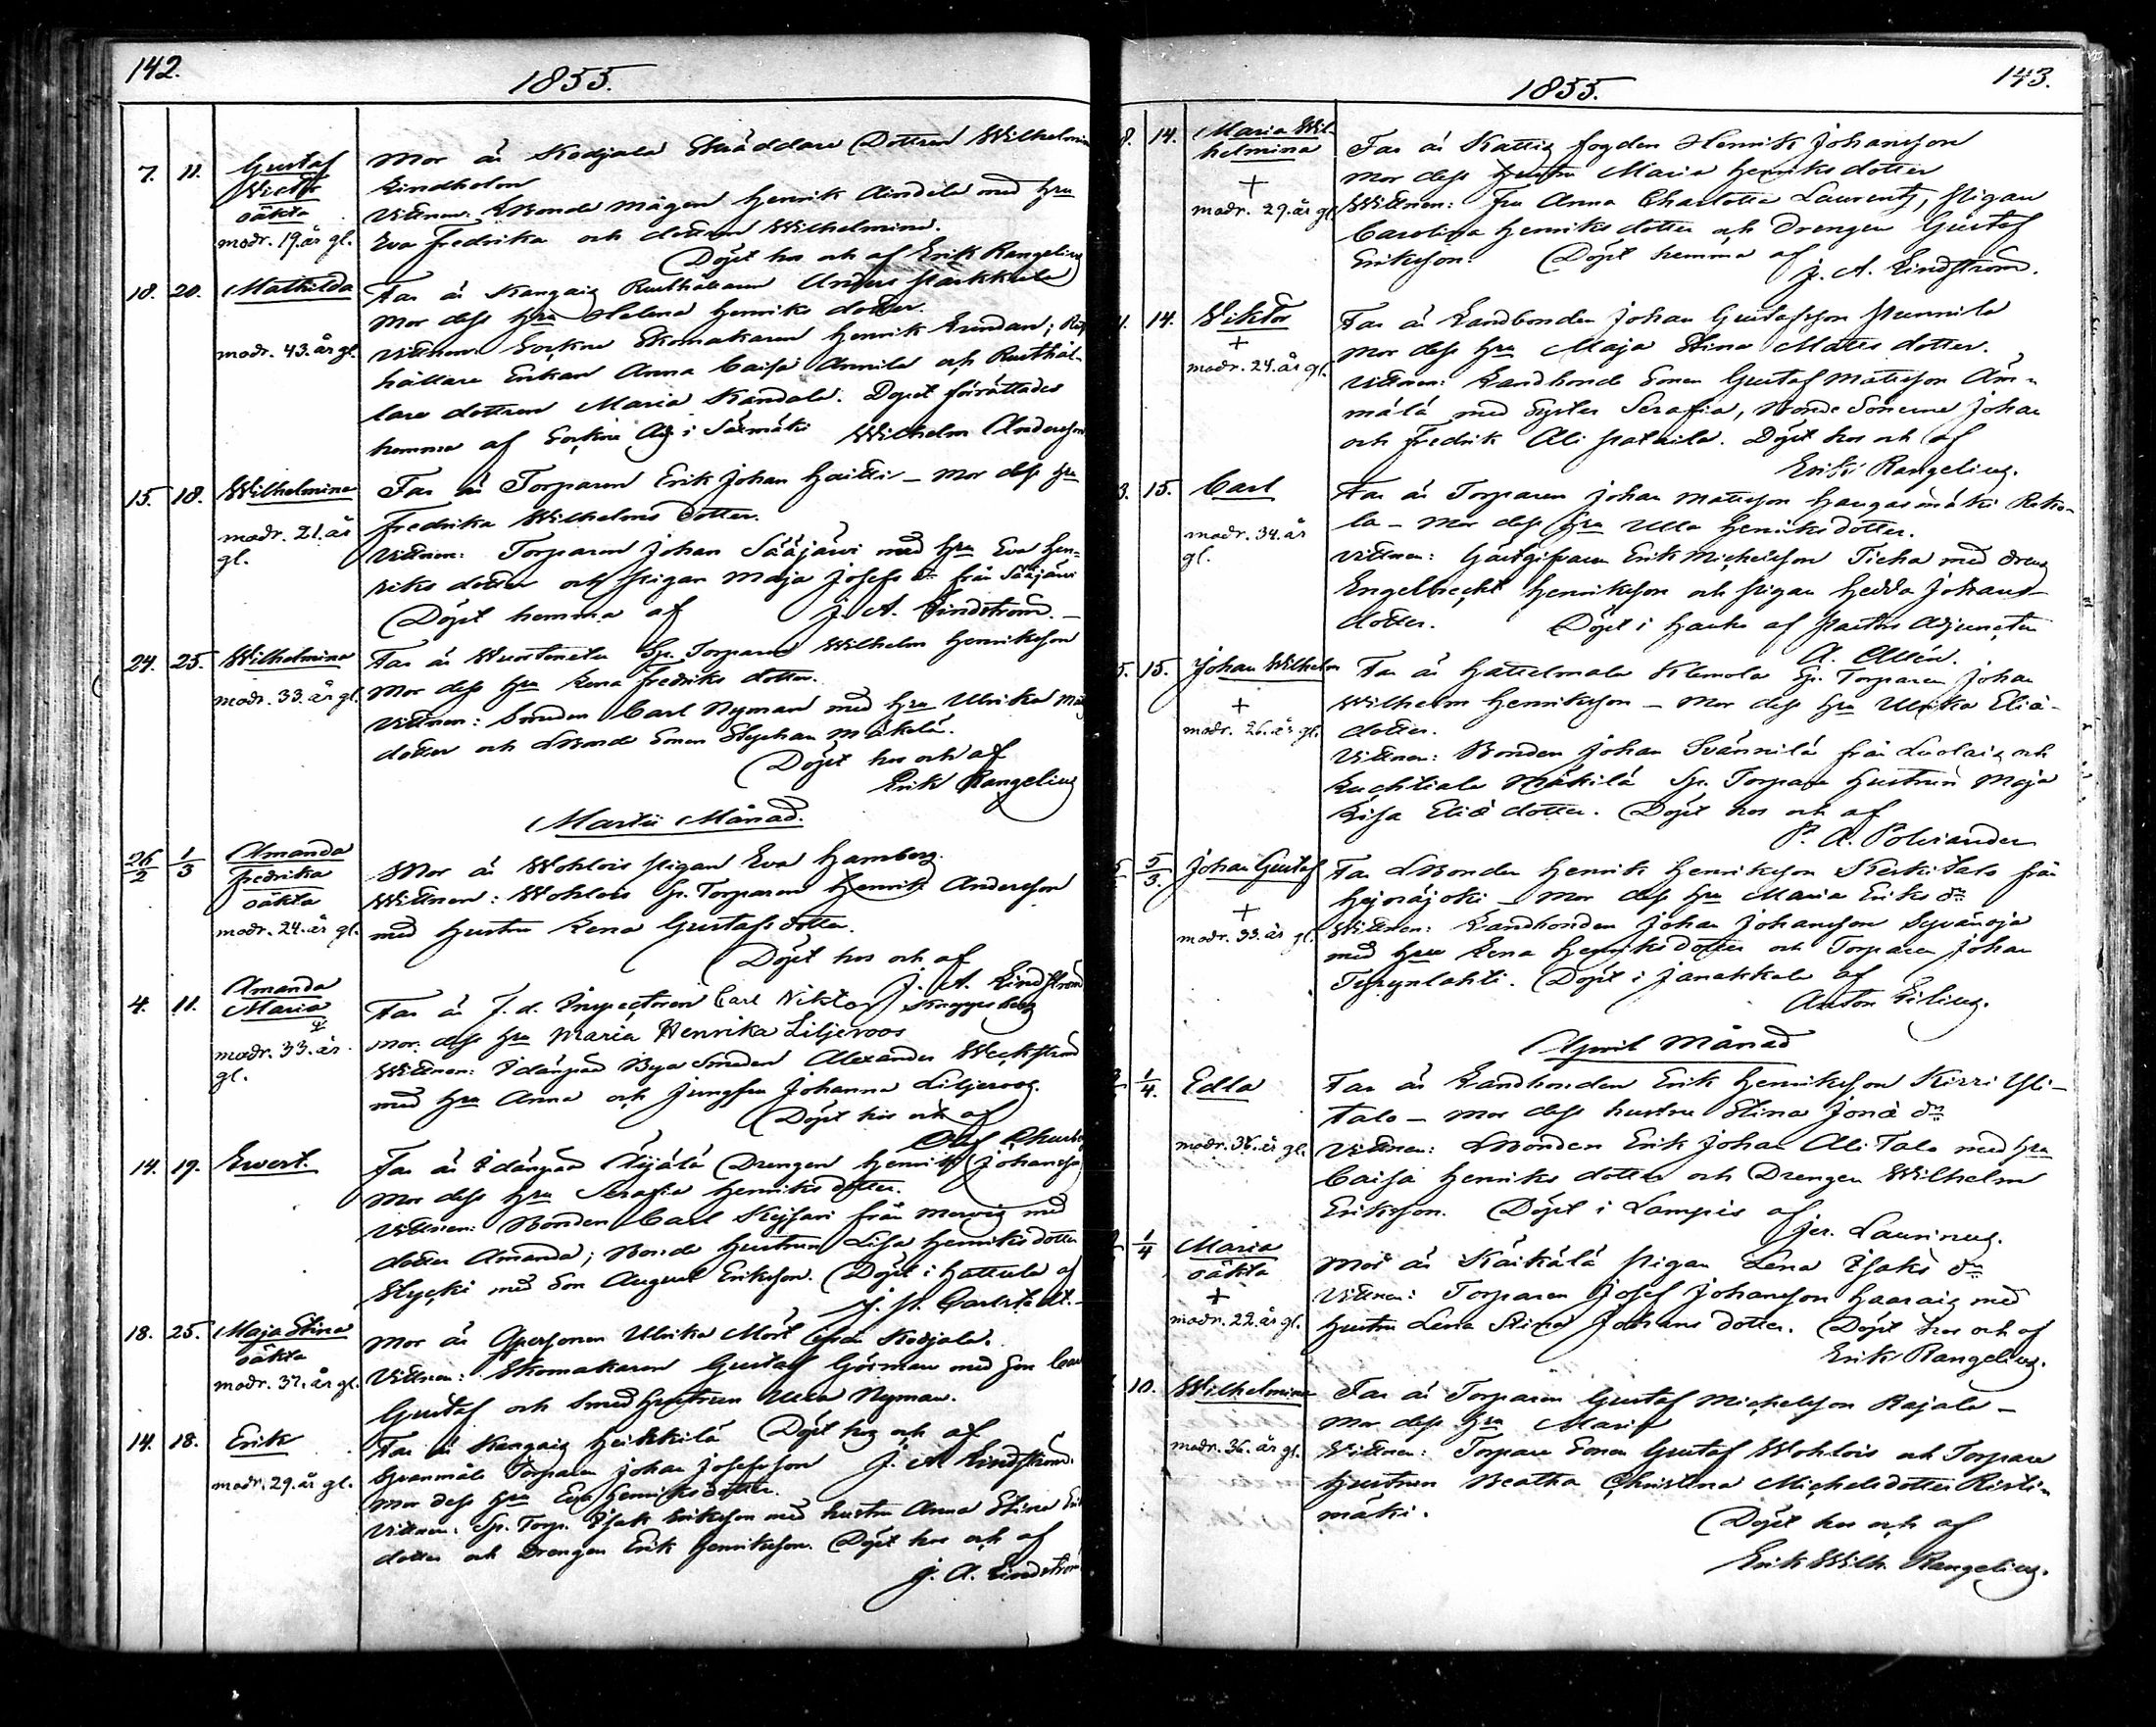 142.
1855.
7. 11. Gustaf Mor är Kodjala Skräddare Dottren Wilhelmin
Victor Lindholm
oäkta Vittnen: Bonde Mågen Henrik Aindela med hru
modr. 19. år gl. Eva Fredrika och dottren Wilhelmina.
Döpt hos och af Erik Rangelius
18. 20. Mathilda Far är Kangais Rusthållaren Anders Parkkula
Mor dess hru Helena Henriks dotter.
modr. 43. år gl. Vittnen: Sockne Skomakaren Henrik Lundan; Rust
hållare Enkan Anna Caisa Annila och Rusthål-
lare dottren Maria Kandala. Dopet förrättades
hemma af Sockne Adj i Säxmäki Wilhelm Andersson
15. 18. Wilhelmina Far är Torparen Erik Johan Haitti - Mor dess hru
Fredrika Wilhelms dotter.
modr. 21. år Vittnen: Torparen Johan Sääjärvi med hru Eva Hen-
gl. riks dotter och pigan Maja Josefs dr från Sääjärvi
Döpt hemma af J. A. Lindström.
24. 25. Wilhelmina Far är Wuortenela Sp. Torparen Wilhelm Henriksson
modr. 33. år gl. Mor dess hru Lena Fredriks dotter.
Vittnen: Smeden Carl Nyman med hru Ulrika
dotter och Bonde Sonen Stephan Mäkelä.
Döpt hos och af
Erik Rangelius
Martii Månad.
26/2 1/3 Amanda Mor är Wohlois pigan Eva Hamberg.
Fredrika Wittnen: Wohlois Sp. Torparen Henrik Andersson
oäkta
modr. 24. år gl. med hustru Lena Gustafs dotter.
Döpt hos och af
J. A. Lindström
4. 11. Amanda Far är F. d. Inspectoren Carl Niktor Knapps berg
Maria Mor dess hru Maria Henrika Liljeroos
modr. 33. år Wittnen: Idänpää Bya Smeden Alexander Weckström
gl. med hru Anna och Jungfru Johanna Liljeroos.
Döpt hos och af
Olof
14. 19. Ewert. Far är Idänpää Äijälä Drengen Henrik Johansson
Mor dess hru Serafia Henriks dotter.
Vittnen: Bonden Carl Keissari från Mervis med
dotter Amanda; Bonde hustrun Lisa Henriks dotter
Stycki med Son August Eriksson. Döpt i Hattula af
J. H. Carlstedt.
18. 25. Maja Stina Mor är Qpersonen Ulrika Mört ifrån Kodjala.
oäkta Vittnen: Skomakaren Gustaf Görman med Son Carl
modr. 37. år gl. Gustaf och Smed hustrun Ulla Nyman.
Döpt hos och af
J. A. Lindström.
14. 18. Erik Far är Kangais Heikkilä
Torparen Johan Josefsson
modr. 29. år gl. Mor dess hru Eva Henriksdotter.
Vittnen: Sp. Torp. Isak Eriksson med hustru Anna Stina
dotter och Drengen Erik Henriksson. Döpt hos och af
J. A. Lindström
143.
1855.
8. 14. Maria Wil- Far är Kattis fogden Henrik Johansson
helmina Mor dess hustru Maria Henriks dotter
+
modr. 29. år gl. Wittnen: Fru Anna Charlotta Laurentz, Pigan
Carolina Henriks dotter och Drengen Gustaf
Eriksson. Döpt hemma af
J. A. Lindström.
14. Viktor Far är Landbonden Johan Gustafsson Punnila
+ Mor dess hru Maja Stina Matts dotter.
modr. 24. år gl. Vittnen: Landbonde Sonen Gustaf Mattsson Äm-
mälä med Syster Serafia, Bonde Sönerne Johan
och Fredrik Ali Pataila. Döpt hos och af
Erik Rangelius.
3. 15. Carl Far är Torparen Johan Mattsson Hangasmäki Reko-
modr. 34. år la - Mor dess hru Ulla Henriks dotter.
gl. Vittnen: Gästgifvaren Erik Michelsson Ticka med dreng
Engelbrecht Henriksson och Pigan Hedda Johans-
dotter. Döpt i Hauho af Pastors Adjuncten
A. Allén.
5. 15. Johan Wilhelm Far är Hattelmala Klemola Sp. Torparen Johan
+ Wilhelm Henriksson - Mor dess hru Ulrika Eliä-
modr. 26. år gl. dotter.
Vittnen: Bonden Johan Svännilä från Luolais och
Kuchtiala Mäkilä Sp. Torpare Hustrun Maja
Lisa Eliä dotter. Döpt hos och af
P. A. Polviander
5/3. Johan Gustaf Far Bonden Henrik Henriksson Keskitalo från
Hejnäjoki - Mor dess hru Maria Eriks dr
+
modr. 33. år gl. Wittnen: Landbonden Johan Johansson Syvänoja
med hru Lena Henriksdotter och Torparen Johan
Tyrynlahti. Döpt i Janakkala af
Anton Lilius.
April Månad
1/4. Edla Far är Landbonden Erik Henriksson Kirri Yli-
talo - Mor dess hustru Stina Jonä dr
modr. 36. år gl. Vittnen: Bonden Erik Johan Ali Talo med hru
Caisa Henriks dotter och Drengen Wilhelm
Eriksson. Döpt i Lampis af
Jer. Laurinus.
1/4 Maria Mor är Käikälä Pigan Lena Isaks dr
oäkta Vittnen: Torparen Josef Johansson Haarais med
+
modr. 22. år gl. hustru Lena Stina Johans dotter. Döpt hos och af
Erik Rangelius.
10. Wilhelmina Far är Torparen Gustaf Michelsson Rajala -
Mor dess hru Maria
modr. 36. år gl. Vittnen: Torpare Sonen Gustaf Wohlois och Torpare
hustrun Beatha Christina Michelsdotter Risti-
mäki.
Döpt hos och af
Erik Wilh. Rangelius.